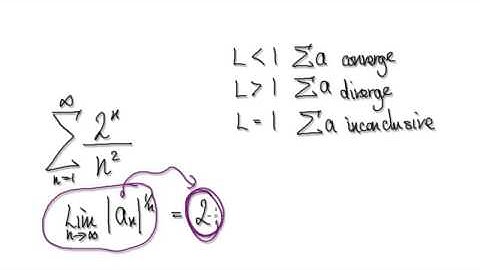 L < 1 Σa converge
L > 1 Σa diverge
L = 1 Σa inconclusive
∞
∑ 2ⁿ / n²
n=1
Lim |aₙ|^(1/n) = 2
n→∞